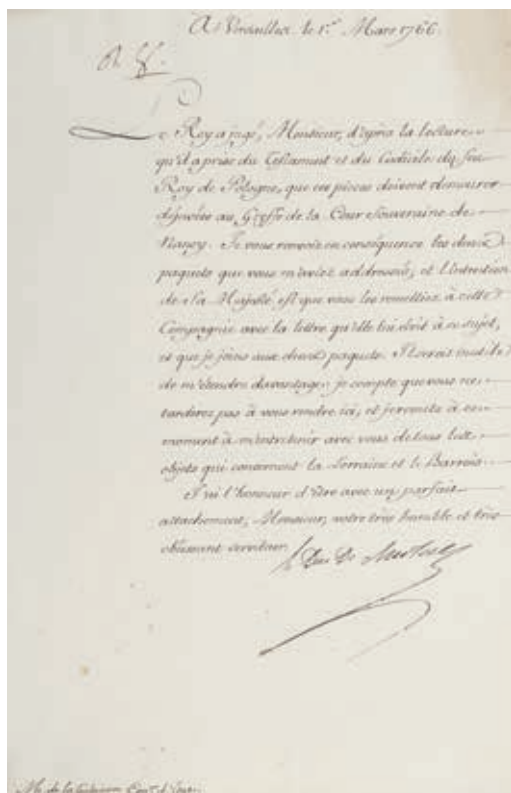 A Versailles le 1.er Mars 1766.
Le Roy a jugé, Monsieur, d'après la lecture
qu'il a prise du Testament et du Codicile du feu
Roy de Pologne, que ces pieces doivent demeurer
déposées au Greffe de la Cour Souveraine de
Nancy. Je vous renvoie en conséquence les deux
paquets que vous m'aviez addressés, et l'intention
de Sa Majesté est que vous les remettiez à cette
Compagnie avec la lettre qu'elle lui écrit à ce sujet,
et que je joins aux deux paquets. Il seroit inutile
de m'étendre davantage, je compte que vous ne
tarderez pas à vous rendre ici, et je remets à ce
moment à m'entretenir avec vous de tous les
objets qui concernent la Lorraine et le Barrois.
J'ai l'honneur d'être avec un parfait
attachement, Monsieur, votre très humble et très
obéissant serviteur.
Le Duc De
M. de la